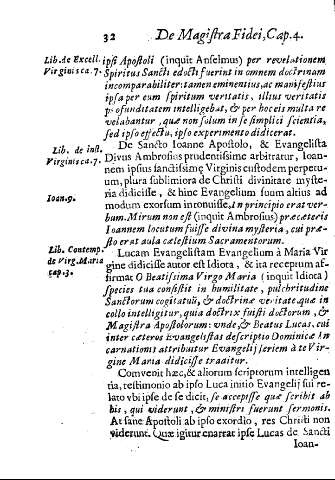 32 De Magistra Fidei, Cap.4.
Lib. de Excell. Virginis ca. 7.
ipsi Apostoli (inquit Anselmus) per revelationem
Spiritus Sancti edocti fuerint in omnem doctrinam
incomparabiliter: tamen eminentius, ac manifestius
ipsa per eum spiritum veritatis, illius veritatis
profunditatem intelligebat, & per hoc eis multa re
velabantur, quæ non solum in se simplici scientia,
sed ipso effectu, ipso experimento didicerat.
Lib. de inst. Virginis ca. 7.
De Sancto Ioanne Apostolo, & Evangelista
Divus Ambrosius prudentissime arbitratur, Ioan-
nem ipsius sanctissimę Virginis custodem perpetu-
um, plura sublimiora de Christi divinitate myste-
ria didicisse, & hinc Evangelium suum altius ad
Ioan. 9.
modum exorsum inronuisse, In principio erat ver-
bum. Mirum non est (inquit Ambrosius) præ cæteris
Ioannem locutum fuisse divina mysteria, cui præ-
sto erat aula cælestium Sacramentorum.
Lib. Contemp. de Virg. Maria cap. 3.
Lucam Evangelistam Evangelium à Maria Vir
gine didicisse autor est Idiota, & ita receptum af-
firmat O Beatissima Virgo Maria (inquit Idiota)
species tua consistit in humilitate, pulchritudine
Sanctorum cogitatuū, & doctrinæ veritate. quæ in
collo intelligitur, quia doctrix fuisti doctorum, &
Magistra Apostolorum: unde, & Beatus Lucas, cui
inter cæteros Evangelistas descriptio Dominicæ In
carnationis attribuitur Evangelij seriem à te Vir-
gine Maria didicisse traditur.
Convenit hæc, & aliorum scriptorum intelligen
tia, testimonio ab ipso Luca initio Evangelij sui re-
lato vbi ipse de se dicit, se accepisse quæ scribit ab
his, qui viderunt, & ministri fuerunt sermonis.
At sane Apostoli ab ipso exordio, res Christi non
viderunt. Quæ igitur enarrat ipse Lucas de Sancti
Ioan-